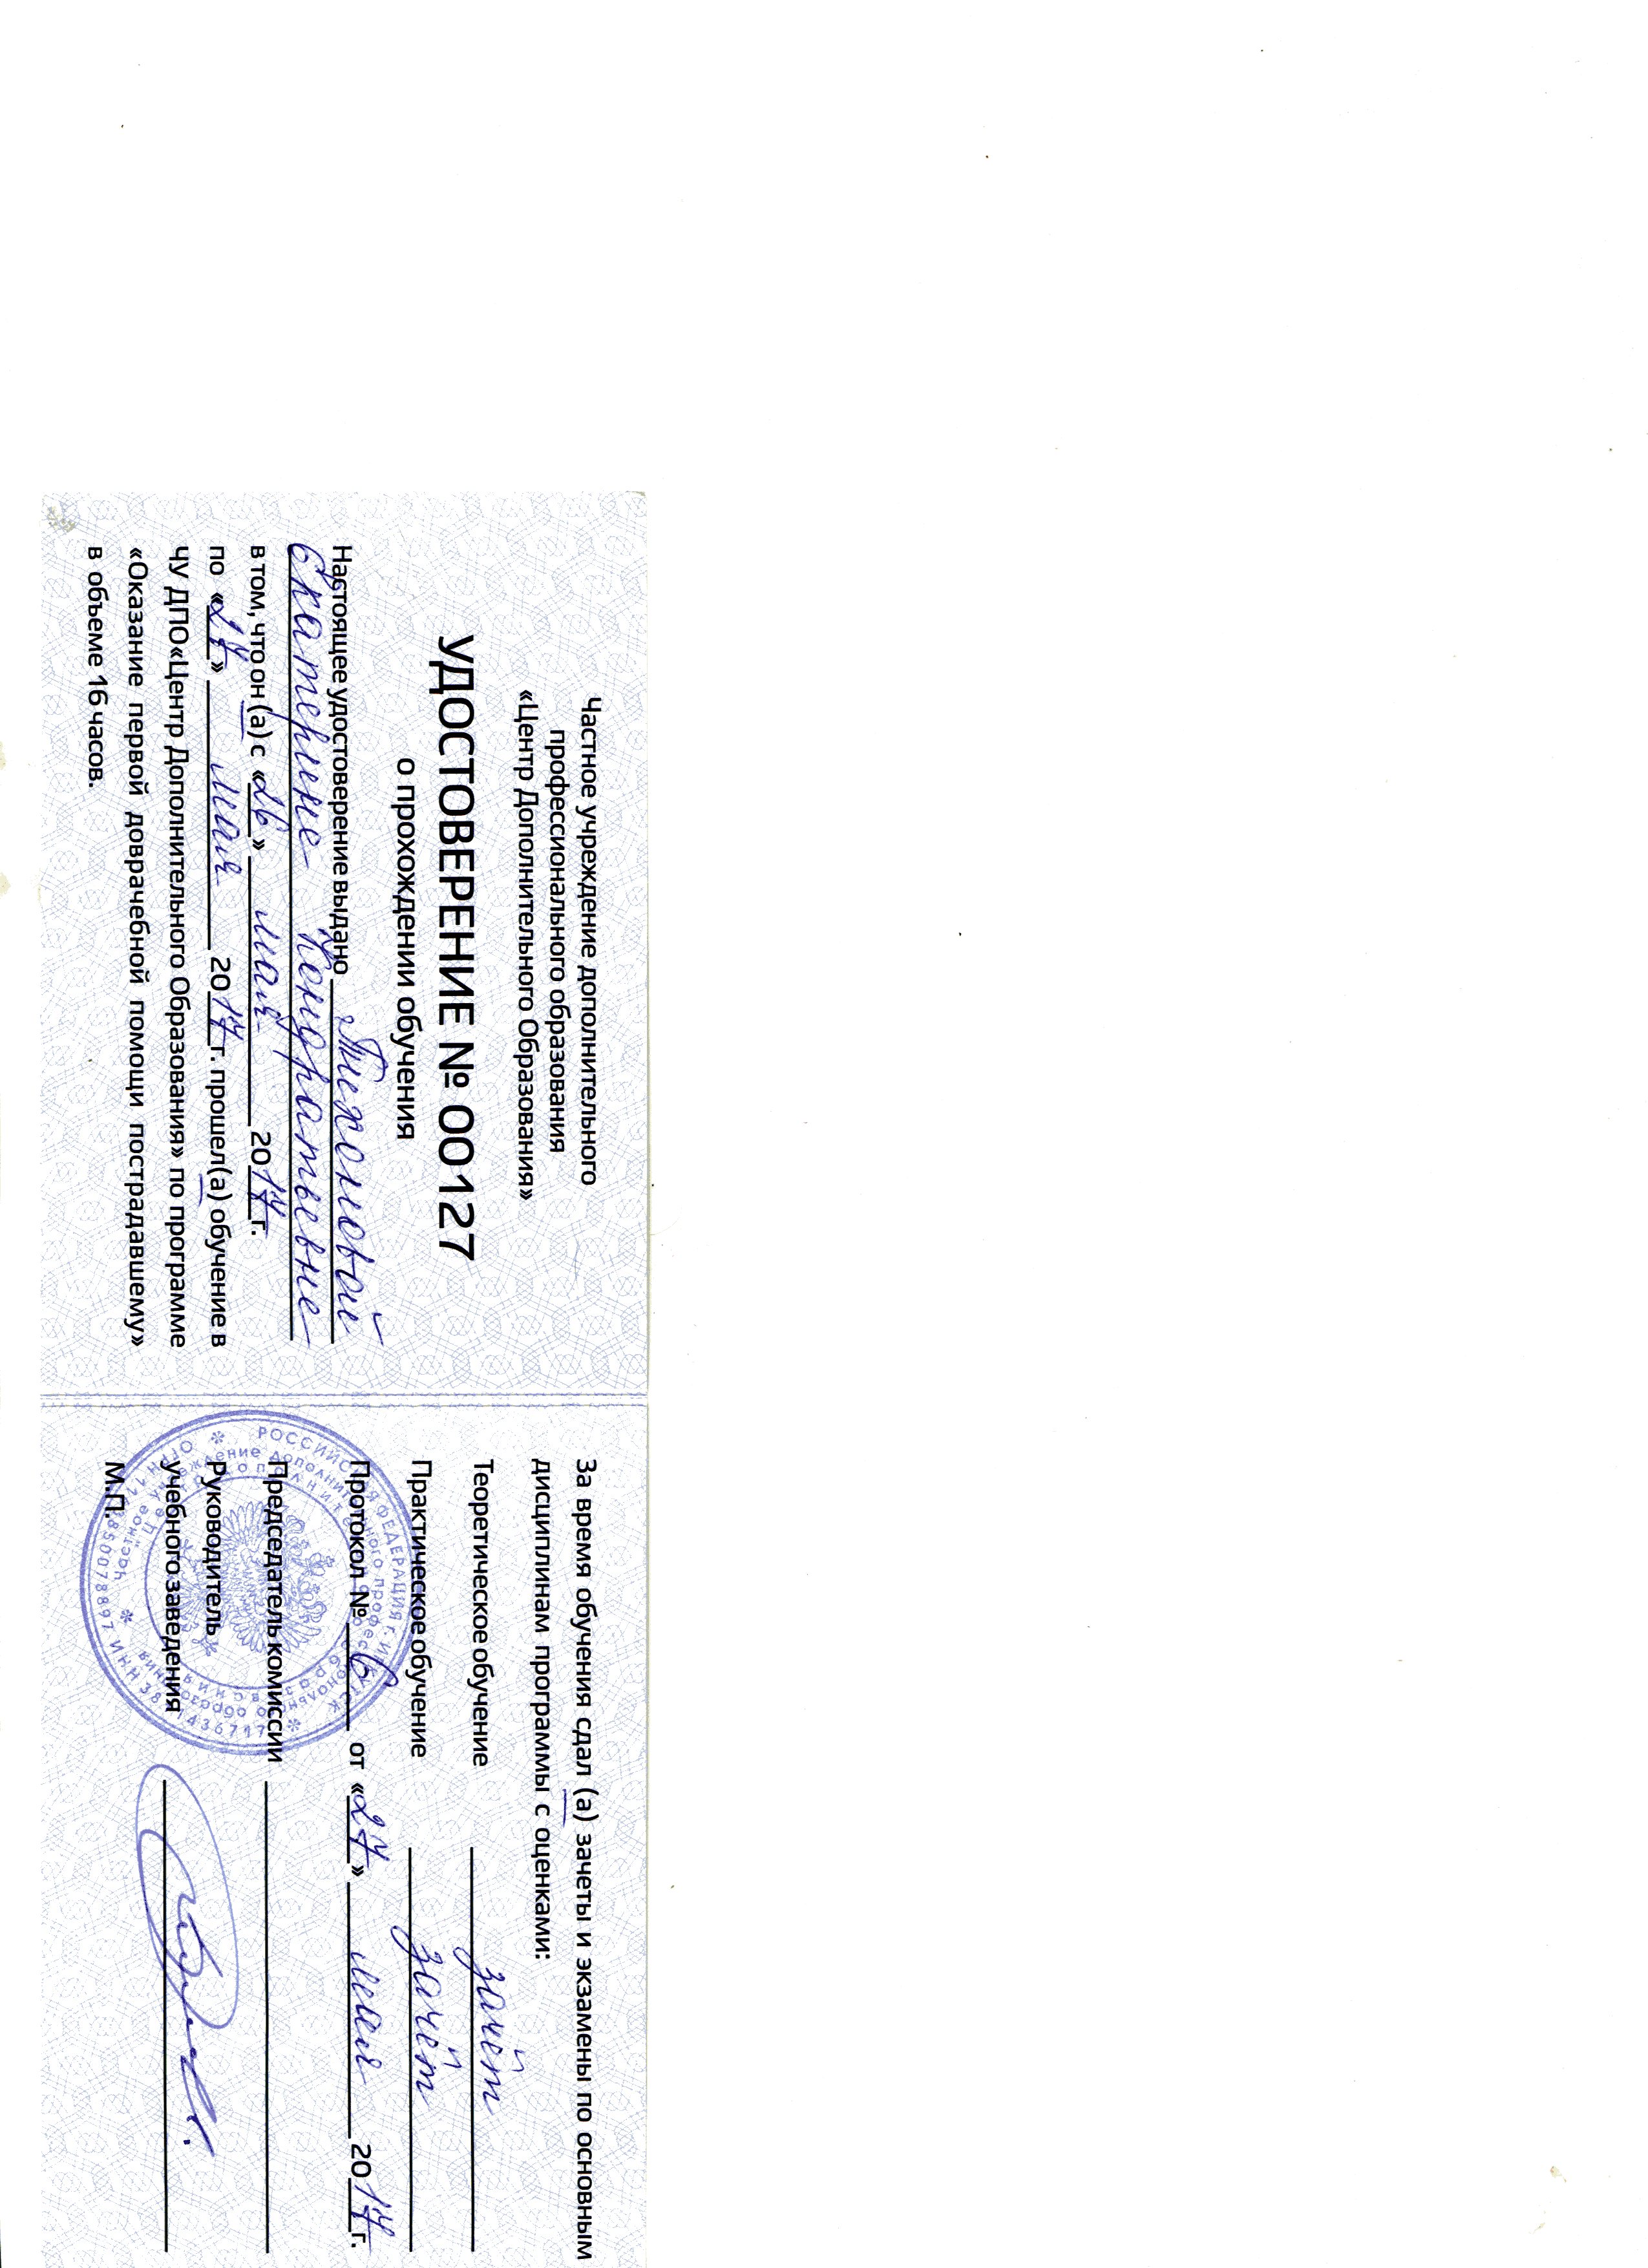 Частное учреждение дополнительного
профессионального образования
«Центр Дополнительного Образования»
УДОСТОВЕРЕНИЕ № 00127
о прохождении обучения
Настоящее удостоверение выдано Тихоновой
Екатерине Кондратьевне
в том, что он (а) с «26» мая 2017г.
по «27» мая 2017г. прошел(а) обучение в
ЧУ ДПО«Центр Дополнительного Образования» по программе
«Оказание первой доврачебной помощи пострадавшему»
в объеме 16 часов.
За время обучения сдал (а) зачеты и экзамены по основным
дисциплинам программы с оценками:
Теоретическое обучение зачёт
Практическое обучение зачёт
Протокол № 6 от «27» мая 2017г.
Председатель комиссии
Руководитель
учебного заведения
М.П.
РОССИЙСКАЯ ФЕДЕРАЦИЯ г. ИРКУТСК